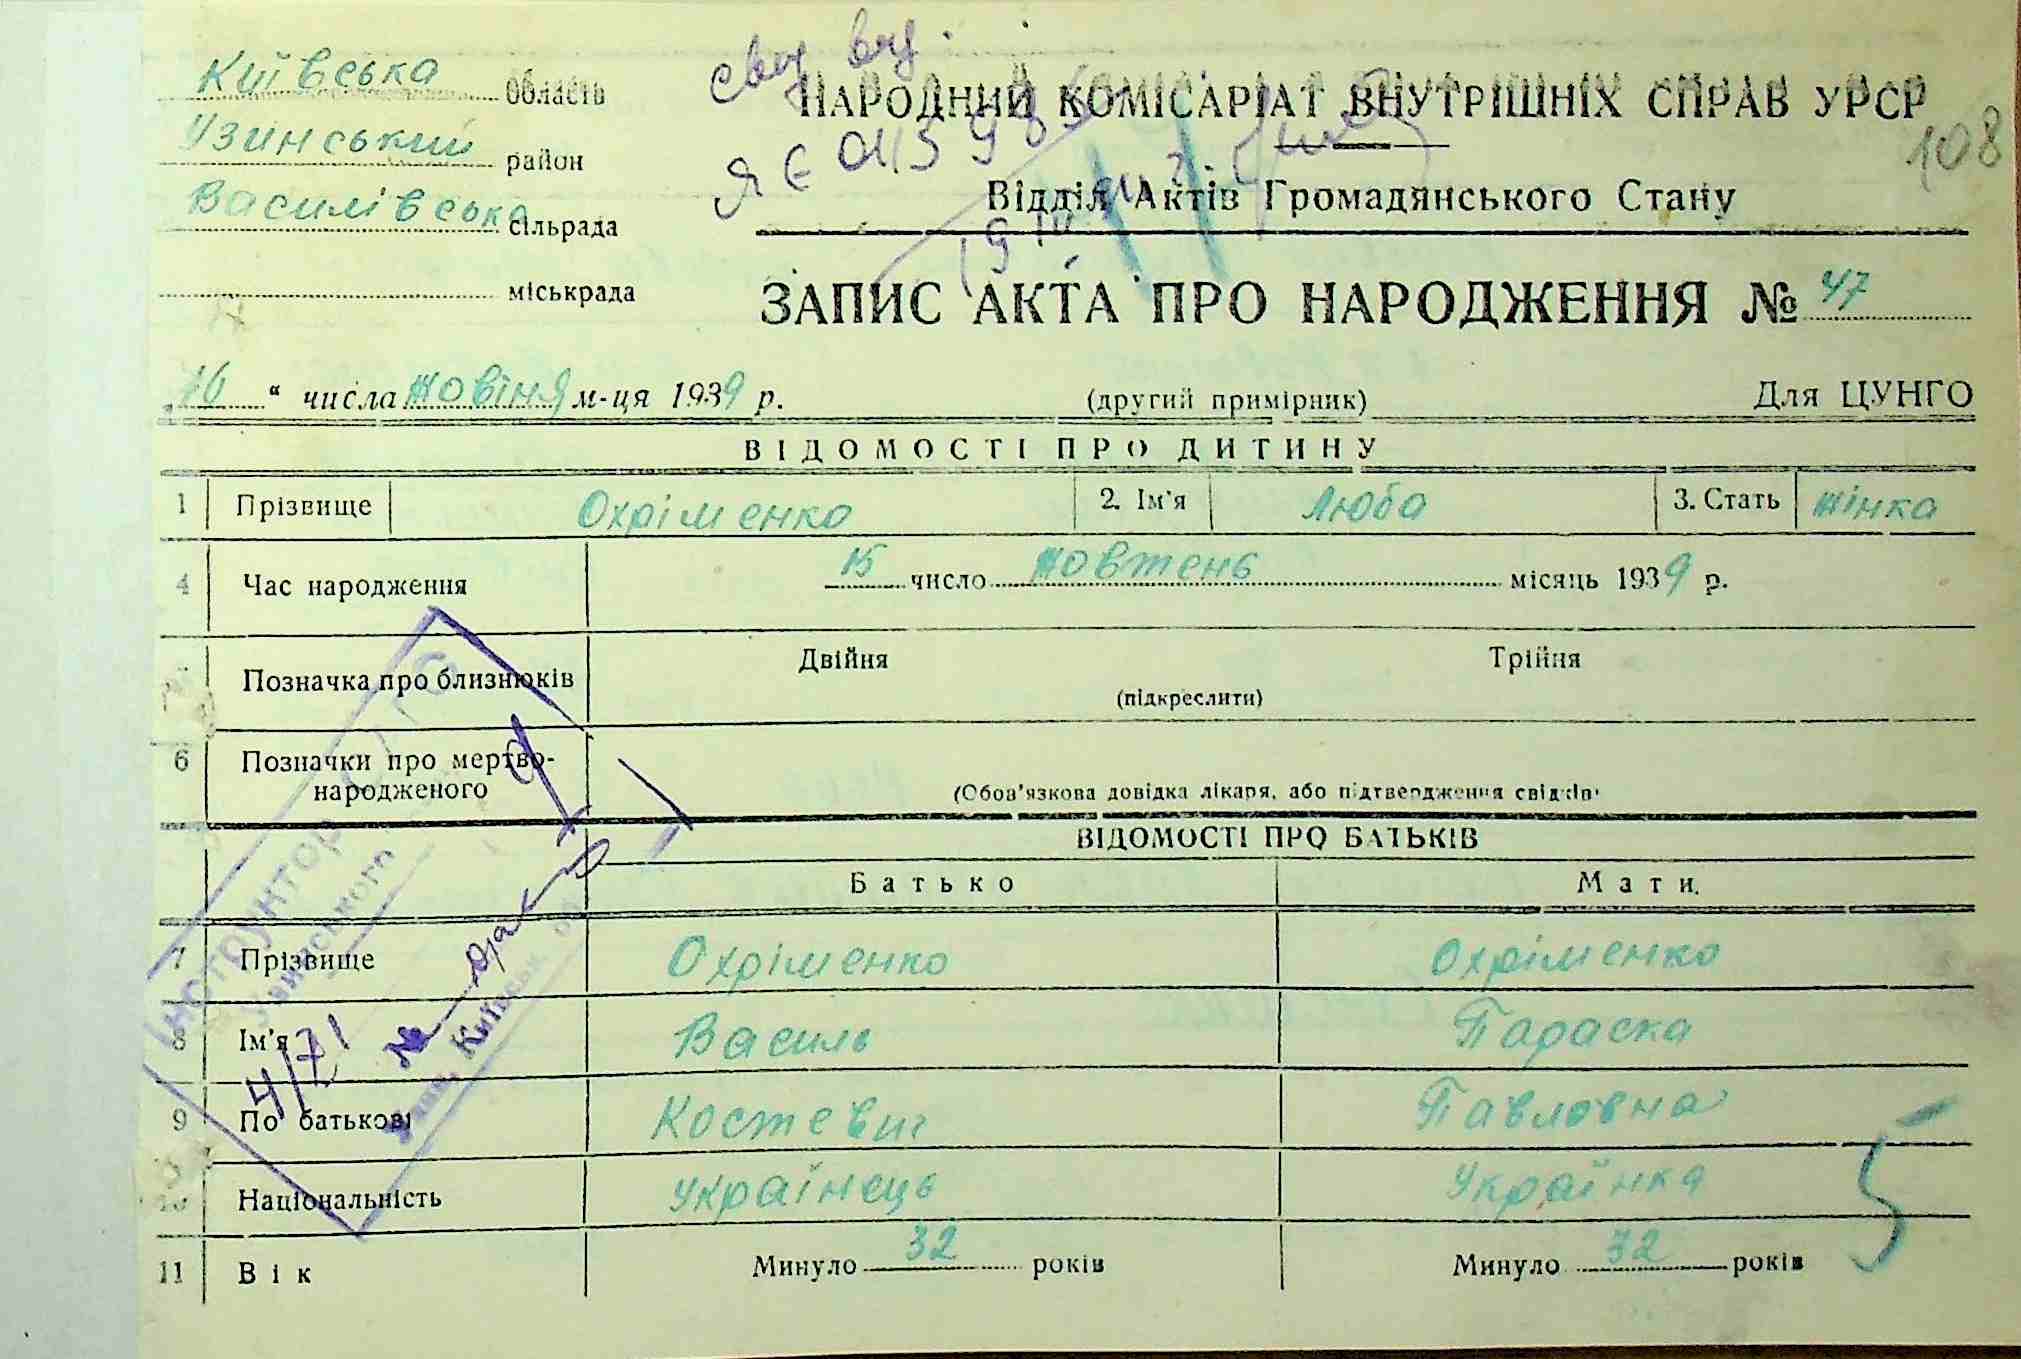 свид выд.
Київська область
НАРОДНИЙ КОМІСАРІАТ ВНУТРІШНІХ СПРАВ УРСР
108
Узинський район
Василівська сільрада
Відділ Актів Громадянського Стану
міськрада
ЗАПИС АКТА ПРО НАРОДЖЕННЯ № 47
16 " числа жовіня м-ця 1939 р.
(другий примірник)
Для ЦУНГО
ВІДОМОСТІ ПРО ДИТИНУ
1 Прізвище Охріменко 2. Ім'я Люба 3. Стать жінка
4 Час народження 15 число жовтень місяць 1939 р.
Позначка про близнюків Двійня Трійня
(підкреслити)
6 Позначки про мертво-
народженого
(Обов'язкова довідка лікаря, або підтвердження свідків)
ВІДОМОСТІ ПРО БАТЬКІВ
Батько Мати
7 Прізвище Охріменко Охріменко
8 Ім'я Василь Параска
9 По батькові Костевич Павловна
10 Національність Українець Українка
11 Вік Минуло 32 років Минуло 32 років
5